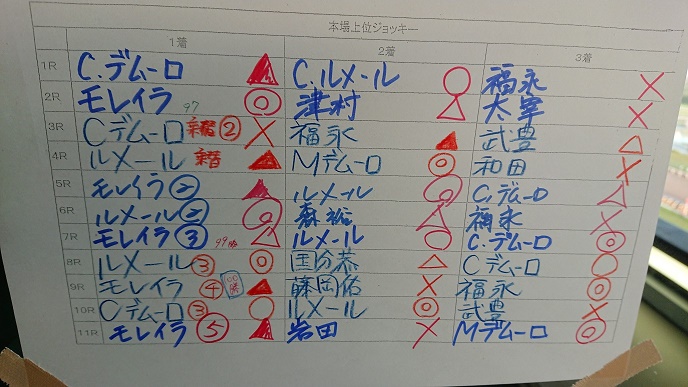 本場上位ジョッキー
1着 2着 3着
1R C.デムーロ ▲ C.ルメール ○ 福永 ×
2R モレイラ 97 ◎ 津村 △ 太宰 ×
3R Cデムーロ ② × 福永 ▲ 武豊 △
4R ルメール ▲ Mデムーロ ◎ 和田 ×
5R モレイラ② ▲ ルメール ◎ C.デムーロ △
6R ルメール② ◎ 森裕 △ 福永 ×
7R モレイラ③ 99勝 △ ルメール ○ C.デムーロ ◎
8R ルメール③ ◎ 国分恭 △ Cデムーロ ○
9R モレイラ④ ▲ 藤岡佑 × 福永 ◎
10R Cデムーロ③ ○ ルメール ◎ 武豊 ×
11R モレイラ⑤ ▲ 岩田 × Mデムーロ ◎